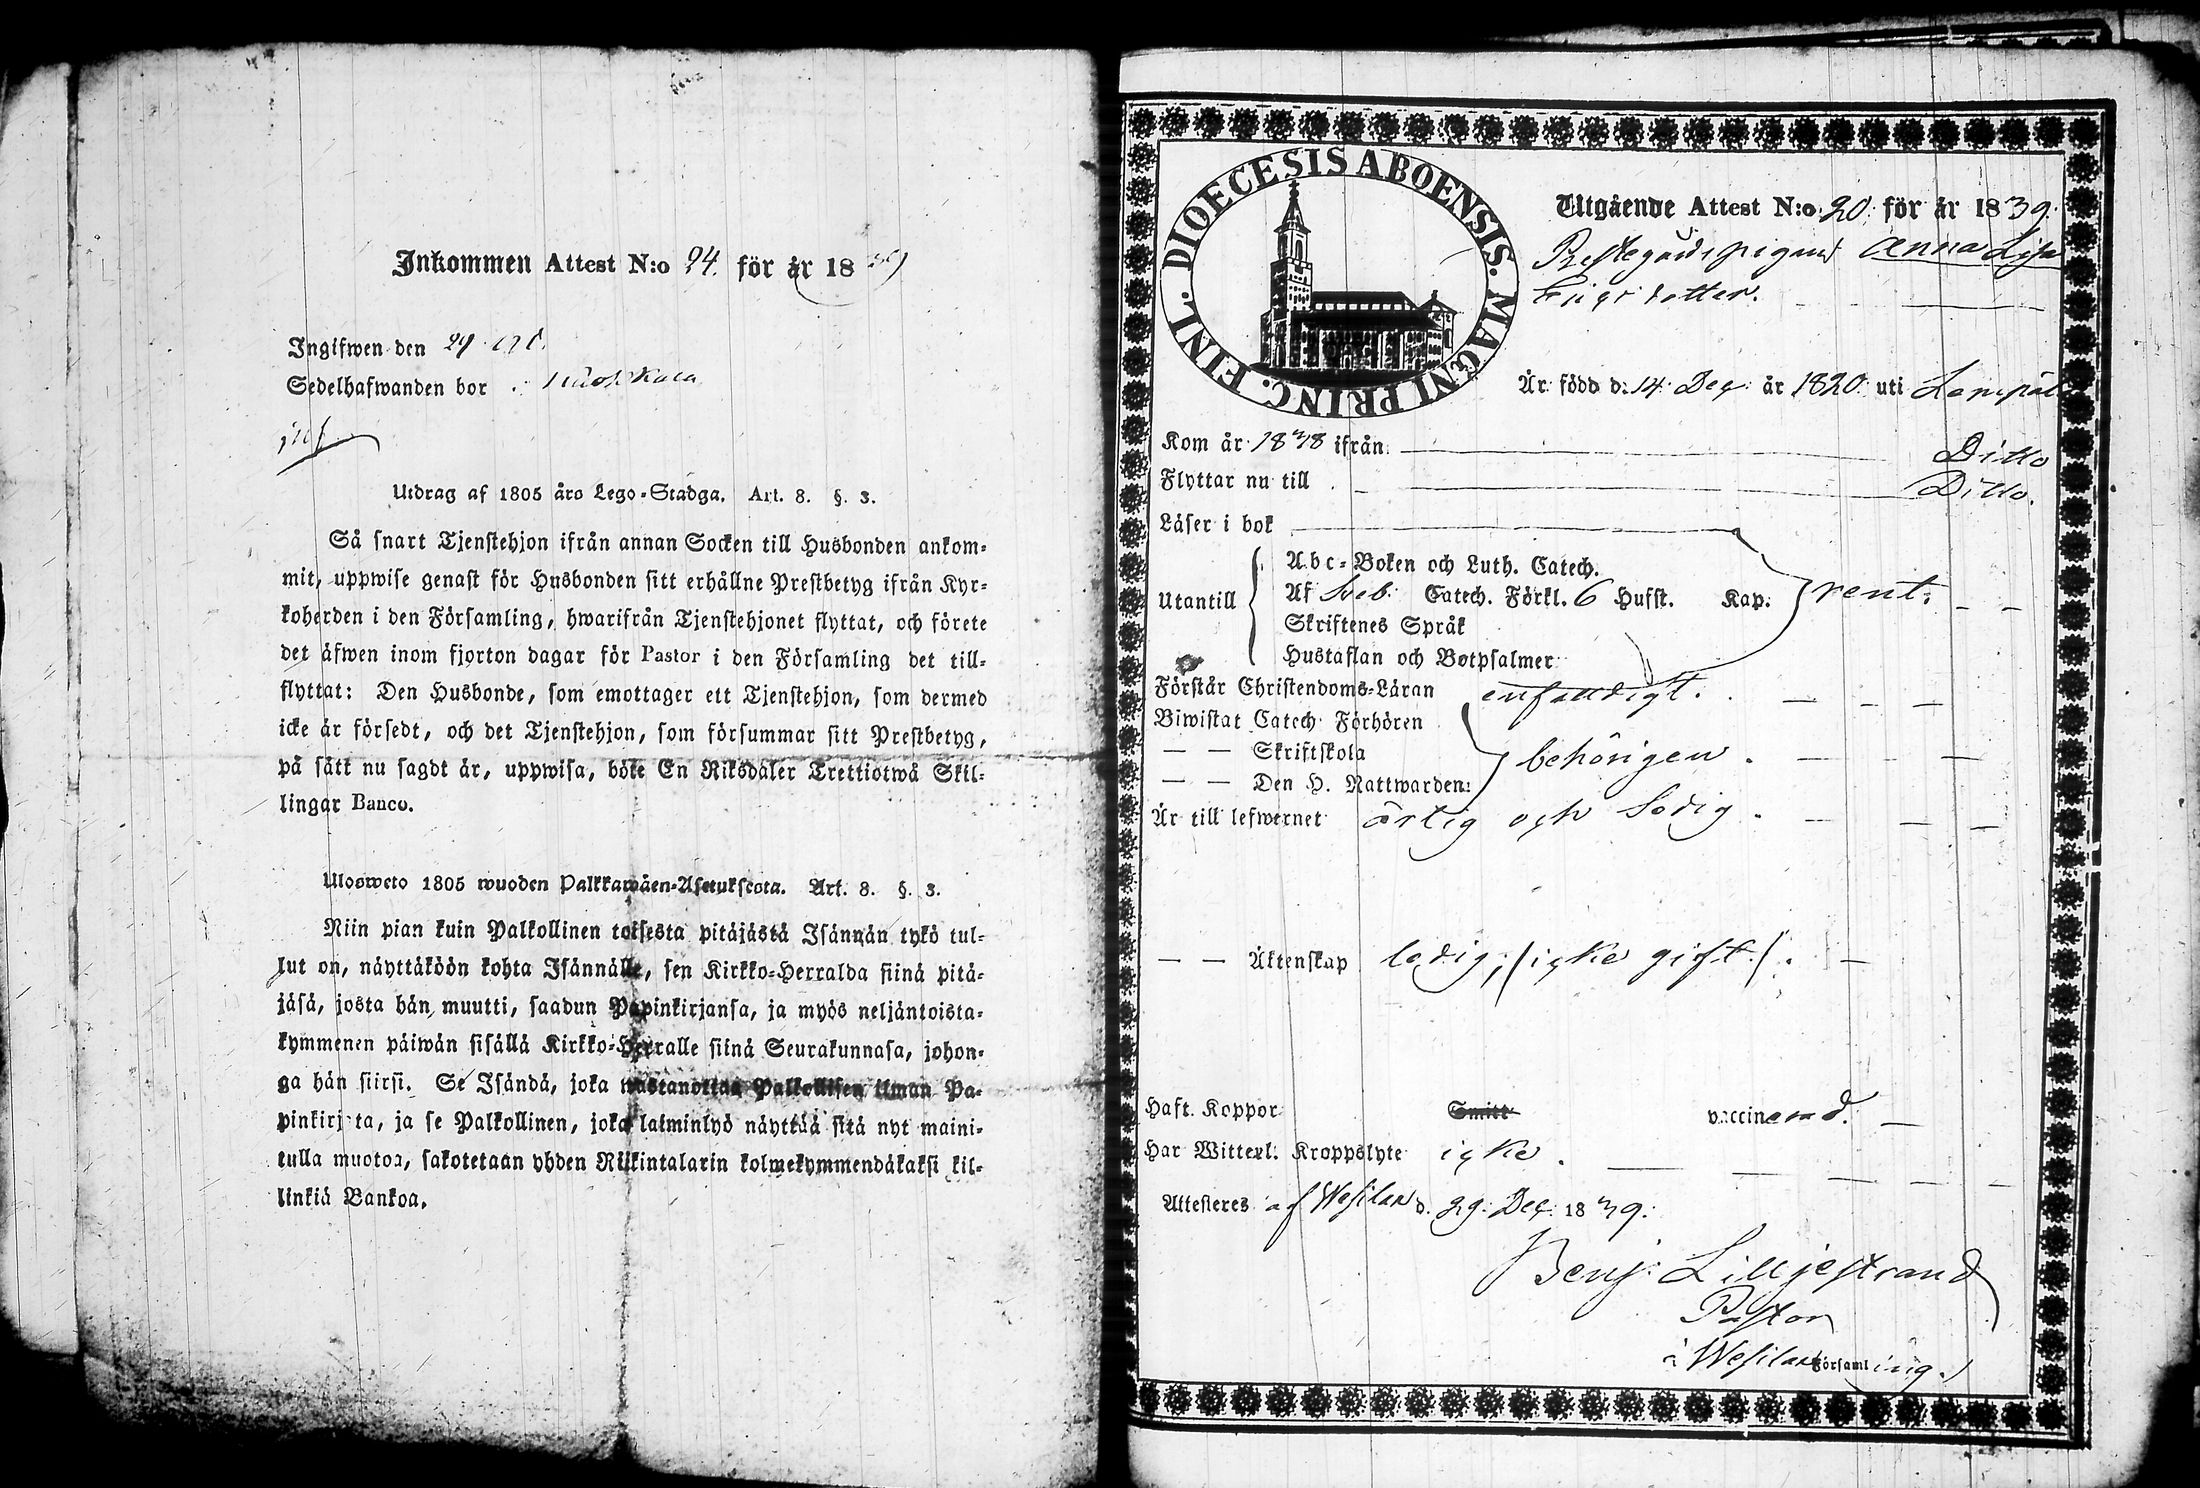 Inkommen Attest N:o 24. för år 18 39
Ingifwen den 29
Sedelhafwanden bor
Utdrag af 1805 års Lego-Stadga. Art. 8. §. 3.
Så snart Tjenstehjon ifrån annan Socken till Husbonden ankom-
mit, uppwise genast för Husbonden sitt erhållne Prestbetyg ifrån Kyr-
koherden i den Församling, hwarifrån Tjenstehjonet flyttat, och förete
det äfwen inom fjorton dagar för Pastor i den Församling det till-
flyttat: Den Husbonde, som emottager ett Tjenstehjon, som dermed
icke är försedt, och det Tjenstehjon, som försummar sitt Prestbetyg,
på sätt nu sagdt är, uppwisa, böte En Riksdaler Trettiotwå Skil-
lingar Banco.
Ulosweto 1805 wuoden Palkkawäen-Asetuksesta. Art. 8. §. 3.
Niin pian kuin Palkollinen toisesta pitäjästä Isännän tykö tul-
lut on, näyttäköön kohta Isännälle, sen Kirkko-Herralda siinä pitä-
jäsä, josta hän muutti, saadun Papinkirjansa, ja myös neljäntoista-
kymmenen päiwän sisällä Kirkko-Herralle siinä Seurakunnasa, johon-
ga hän siirsi. Se Isändä, joka wastanottaa Palkollisen ilman Pa-
pinkirjata, ja se Palkollinen, joka laiminlyö näyttää sitä nyt maini-
tulla muotoa, sakotetaan yhden Riikintalarin kolmekymmendäkaksi kil-
linkiä Bankoa.
DIOECESIS ABOENSIS. MAGNI PRINC. FINL.
Utgående Attest N:o 20. för år 1839.
Prestegårdspigan Anna Lisa
Ericsdotter.
Är född d. 14 Dec. år 1820 uti Lempäl
Kom år 1838 ifrån Ditto
Flyttar nu till Ditto.
Läser i bok
Utantill
Abc-Boken och Luth. Catech.
Af Sveb. Catech. Förkl. 6 Hufst. Kap. rent.
Skriftenes Språk
Hustaflan och Botpsalmer
Förstår Christendoms-Läran enfaldigt.
Biwistat Catech Förhören
— — Skriftskola behörigen.
— — Den H. Nattwarden:
Är till lefwernet ärlig och sedig.
— — Äktenskap ledig, (icke gift).
Haft. Koppor Smitt vaccinerad.
Har Witterl. Kroppslyte icke.
Attesteres af Wesilax d. 29. Dec. 1839.
Benj. Lilljestrand
Pastor
i Wesilax Församling.